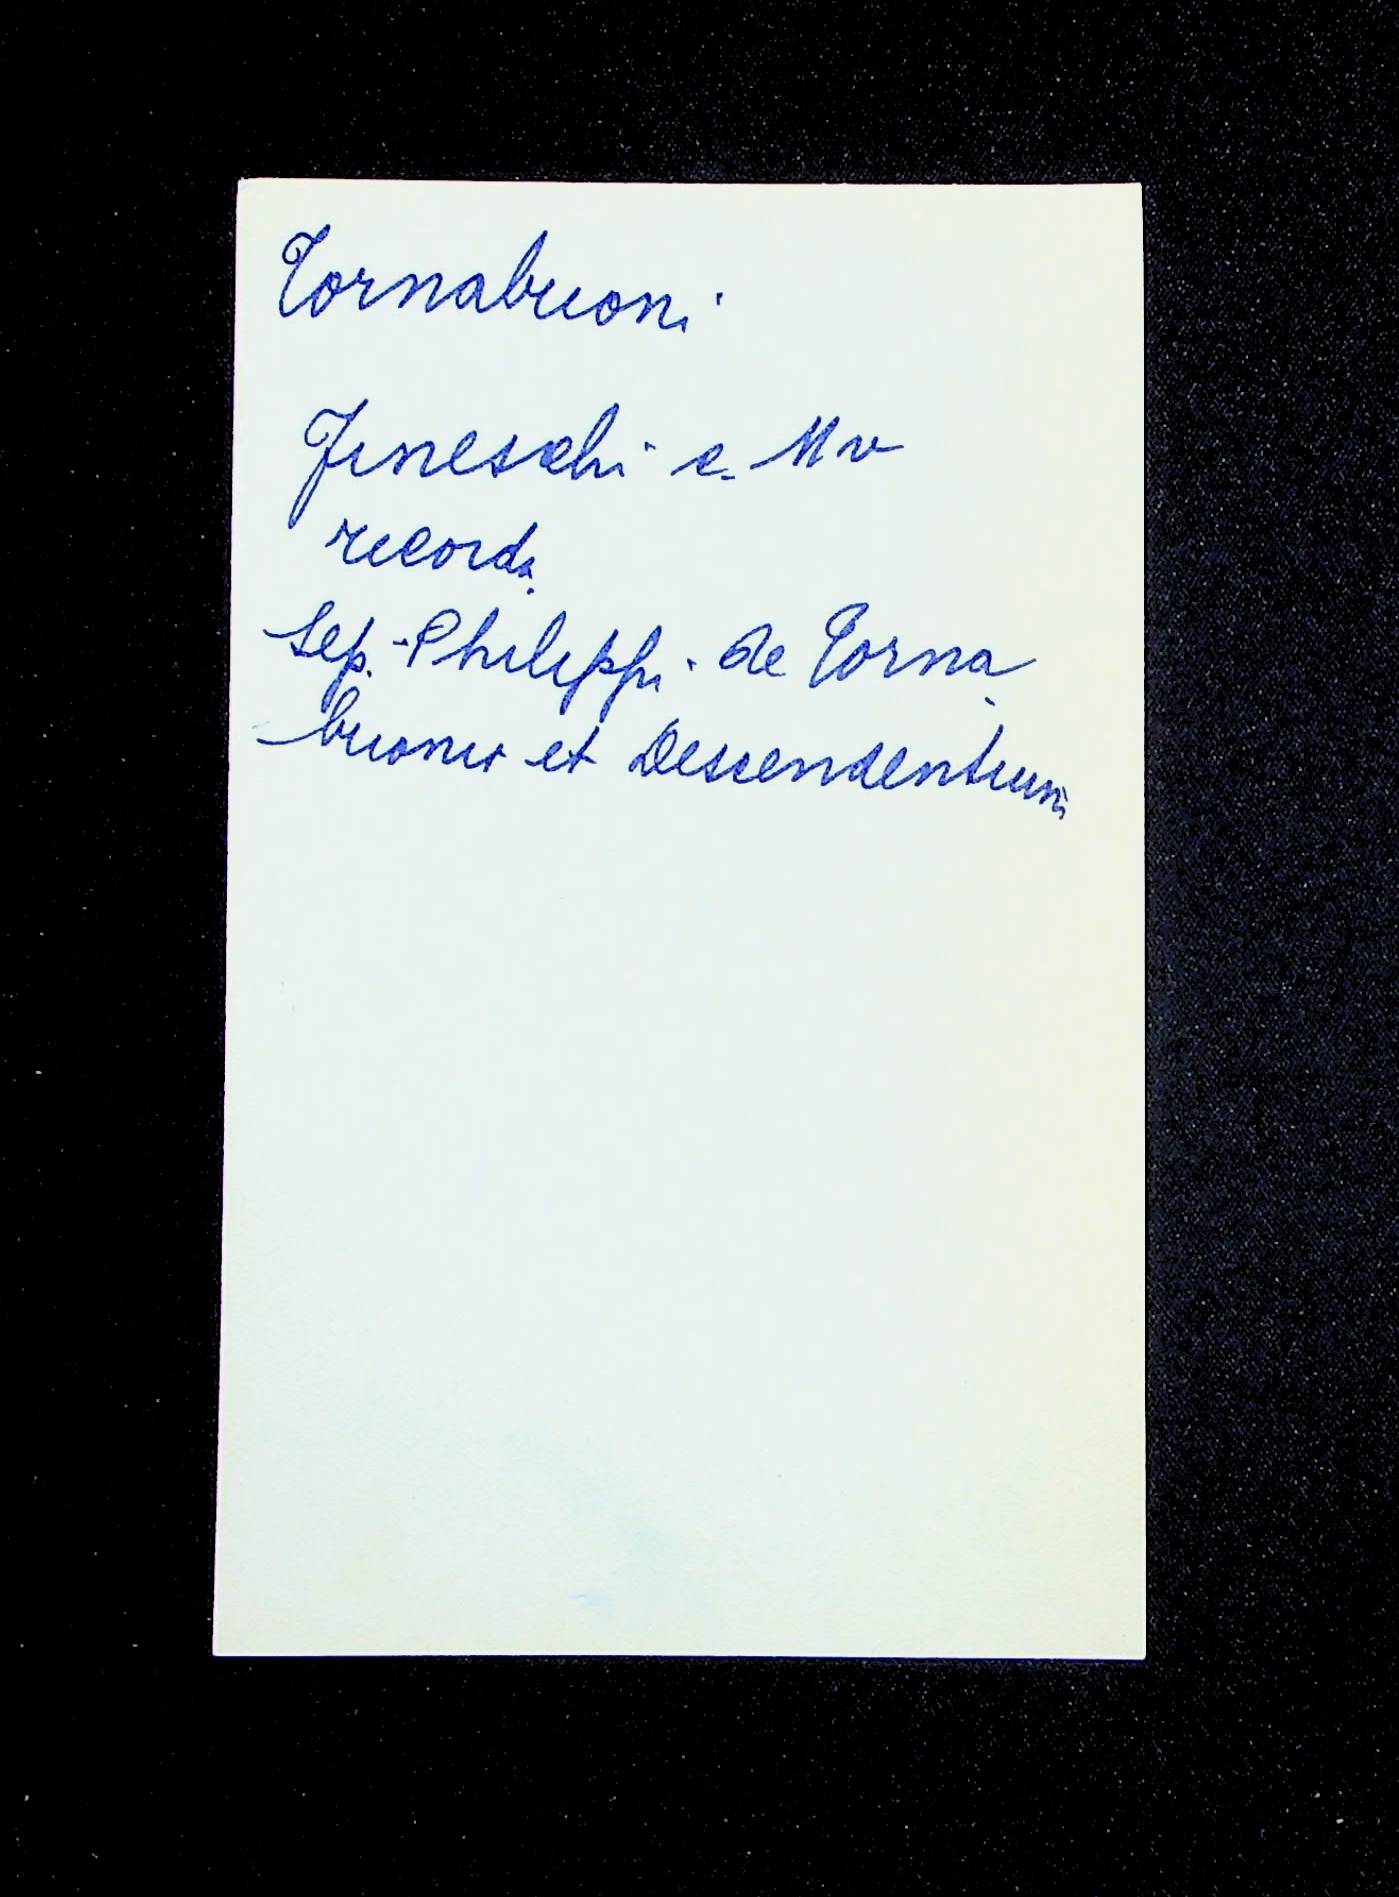 Tornabuoni
Fineschi c. 110
ricorda
Sep. Philippi de Torna
buonis et Descendentium